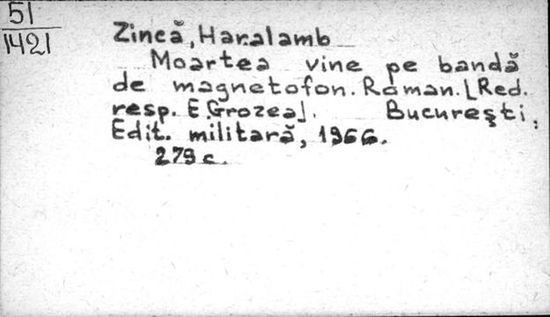 51
1421
Zincă, Haralamb
Moartea vine pe bandă
de magnetofon. Roman. [Red.
resp. E. Grozea]. Bucureşti,
Edit. militară, 1966.
279 c.